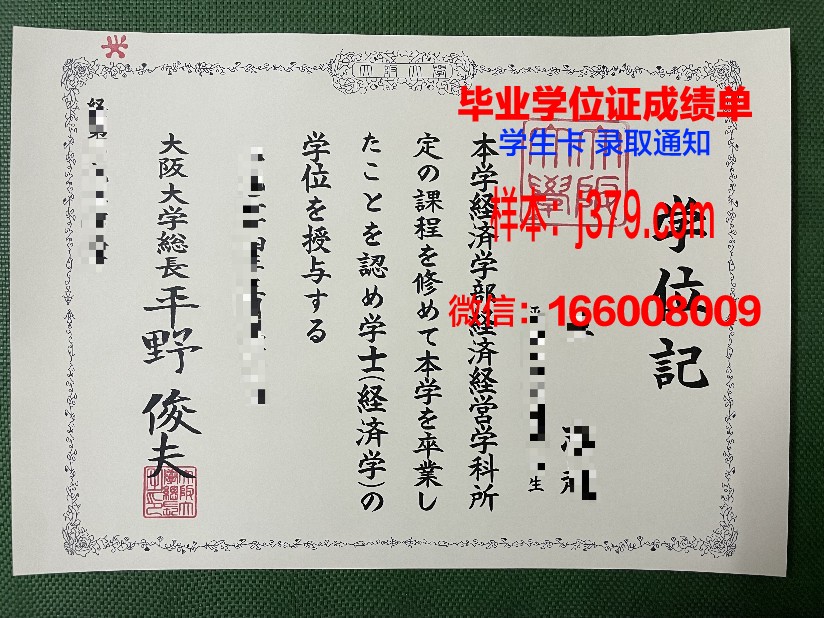 毕业学位证成绩单
学生卡 录取通知
样本: j379.com
微信: 166008009
学位記
生
本学経済学部経済経営学科所
定の課程を修めて本学を卒業し
たことを認め学士(経済学)の
学位を授与する
大阪大学総長 平野 俊夫